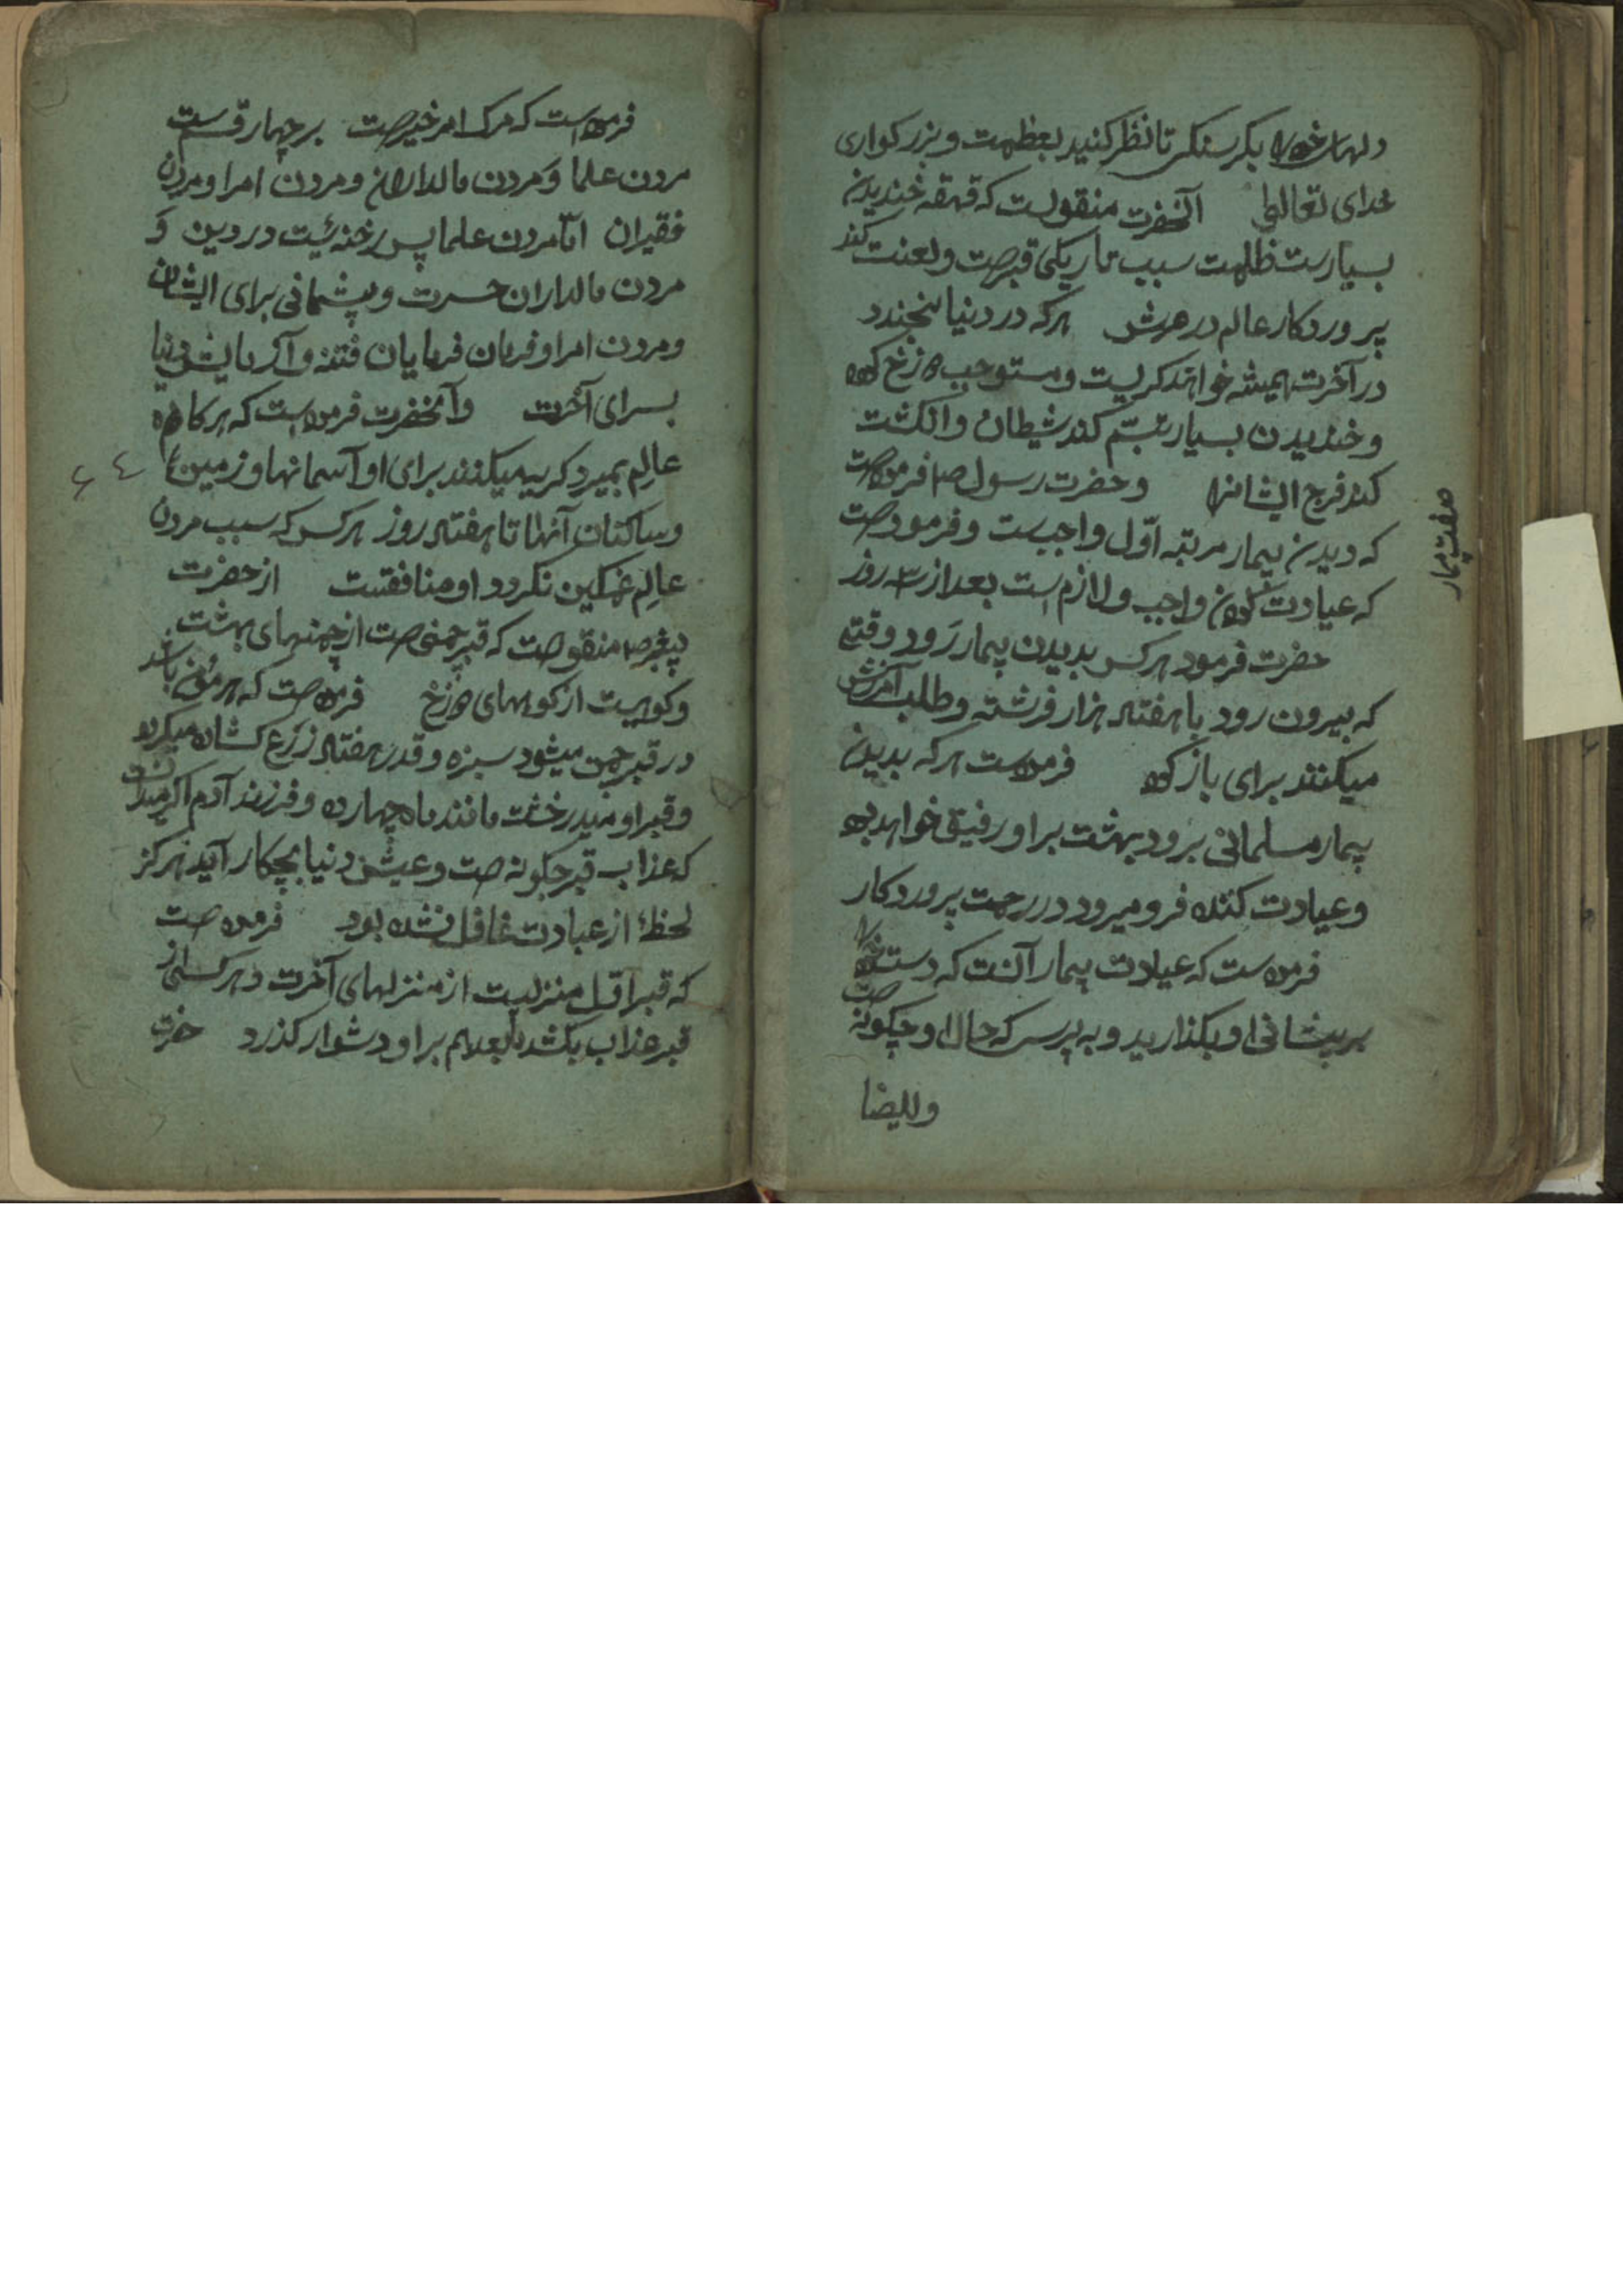 دلهای خود را بکرسنکی تا نظر کنید بعظمت و بزرکواری
خدای تعالی آنحضرت منقولست که قهقه خندیدن
بسیارست ظلمت سبب تاریکی قبرست و لعنت کند
پروردکار عالم در عرش هرکه در دنیا بخندد
در آخرت همیشه خواهد کریست و مستوجب دوزخ کردد
و خندیدن بسیار تبسم کند شیطان و انکشت
کند فرج ایشانرا و حضرت رسول ص فرمودست
که دیدن بیمار مرتبه اوّل واجبست و فرمودست
که عیادت کردن واجب و لازم است بعد از سه روز
حضرت فرمود هرکس بدیدن بیمار رَود وقتی
که بیرون رود با هفتاد هزار فرشته و طلب آمرزش
میکنند برای باز کرد فرمودست هرکه بدیدن
بیمار مسلمانی برود بهشت بر او رفیق خواهد بود
و عیادت کننده فرو میرود در رحمت پروردکار
فرمودست که عیادت بیمار آنست که دست خود را
بر پیشانی او بکذارید و به پرس که حال او چکونه است
صفت بیمار
فرمودست که مرک امر خیرست بر چهار قسمست
مردن علما وَ مردن مالداران و مردن امرا و مردن
فقیران امّا مردن علما پس رخنه ئیست در دین وَ
مردن مالداران حسرت و پشیمانی برای ایشان
و مردن امرا و فرمان فرمایان فتنه و آرایش دنیا
بسرای آخرت و آنحضرت فرمودست که هرکاه
عالِم بمیرد کریه میکنند برای او آسمانها و زمین
و ساکنان آنها تا هفتاد روز هرکس که سبب مردن
عالِم غمکین نکردد او منافقست از حضرت
پیغمبر ص منقولست که قبر چمنی است از چمنهای بهشت
و کویست از کوههای دوزخ فرمودست که هر مؤمن باشد
در قبر چمن میشود سبزه و قدر هفتاد زرع کشاده میکردد
و قبر او میدرخشت مانند ماه چهارده و فرزند آدم اکر میدانست
که عذاب قبر چکونه است و عیش دنیا بچکار آید هرکز
لحظهٔ از عبادت غافل نشده بود فرمودست
که قبر اوّل منزلیست از منزلهای آخرت و هرکس از
قبر عذاب بکشد بعد هم بر او دشوار کذرد حضرت